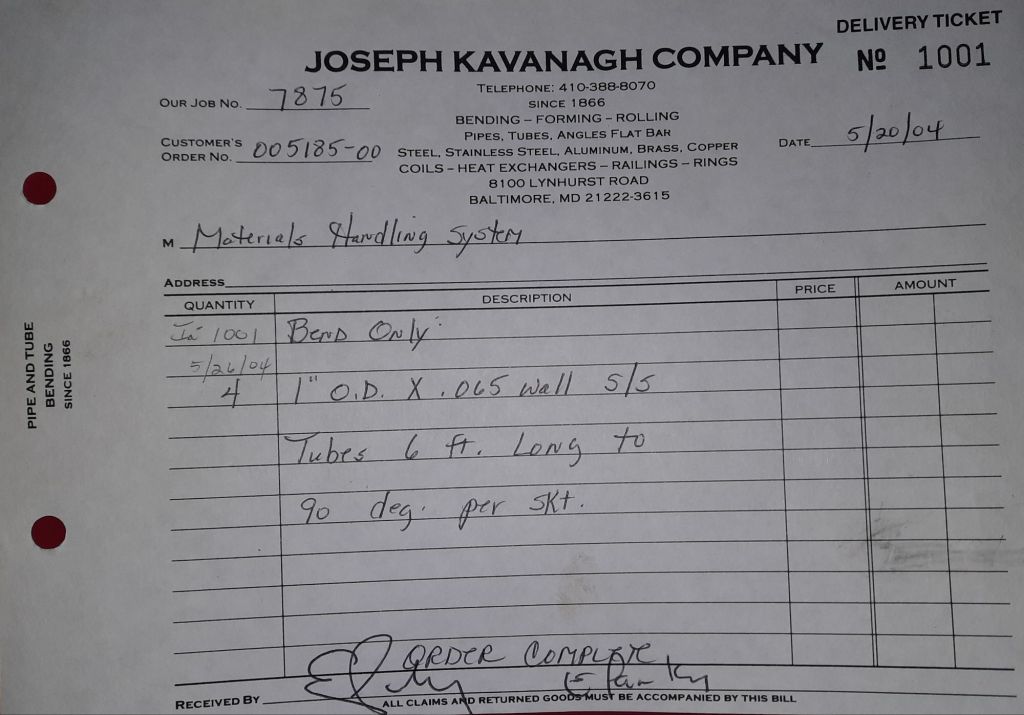 DELIVERY TICKET
JOSEPH KAVANAGH COMPANY
Nº 1001
TELEPHONE: 410-388-8070
OUR JOB NO. 7875
SINCE 1866
BENDING – FORMING – ROLLING
PIPES, TUBES, ANGLES FLAT BAR
CUSTOMER'S
ORDER NO. 005185-00
STEEL, STAINLESS STEEL, ALUMINUM, BRASS, COPPER
DATE 5/20/04
COILS – HEAT EXCHANGERS – RAILINGS – RINGS
8100 LYNHURST ROAD
BALTIMORE, MD 21222-3615
M Materials Handling System
ADDRESS
QUANTITY DESCRIPTION PRICE AMOUNT
1001 Bend Only:
5/26/04
4 1" O.D. X .065 Wall S/S
Tubes 6 ft. Long to
90 deg. per skt.
ORDER COMPLETE
RECEIVED BY
ALL CLAIMS AND RETURNED GOODS MUST BE ACCOMPANIED BY THIS BILL
PIPE AND TUBE
BENDING
SINCE 1866